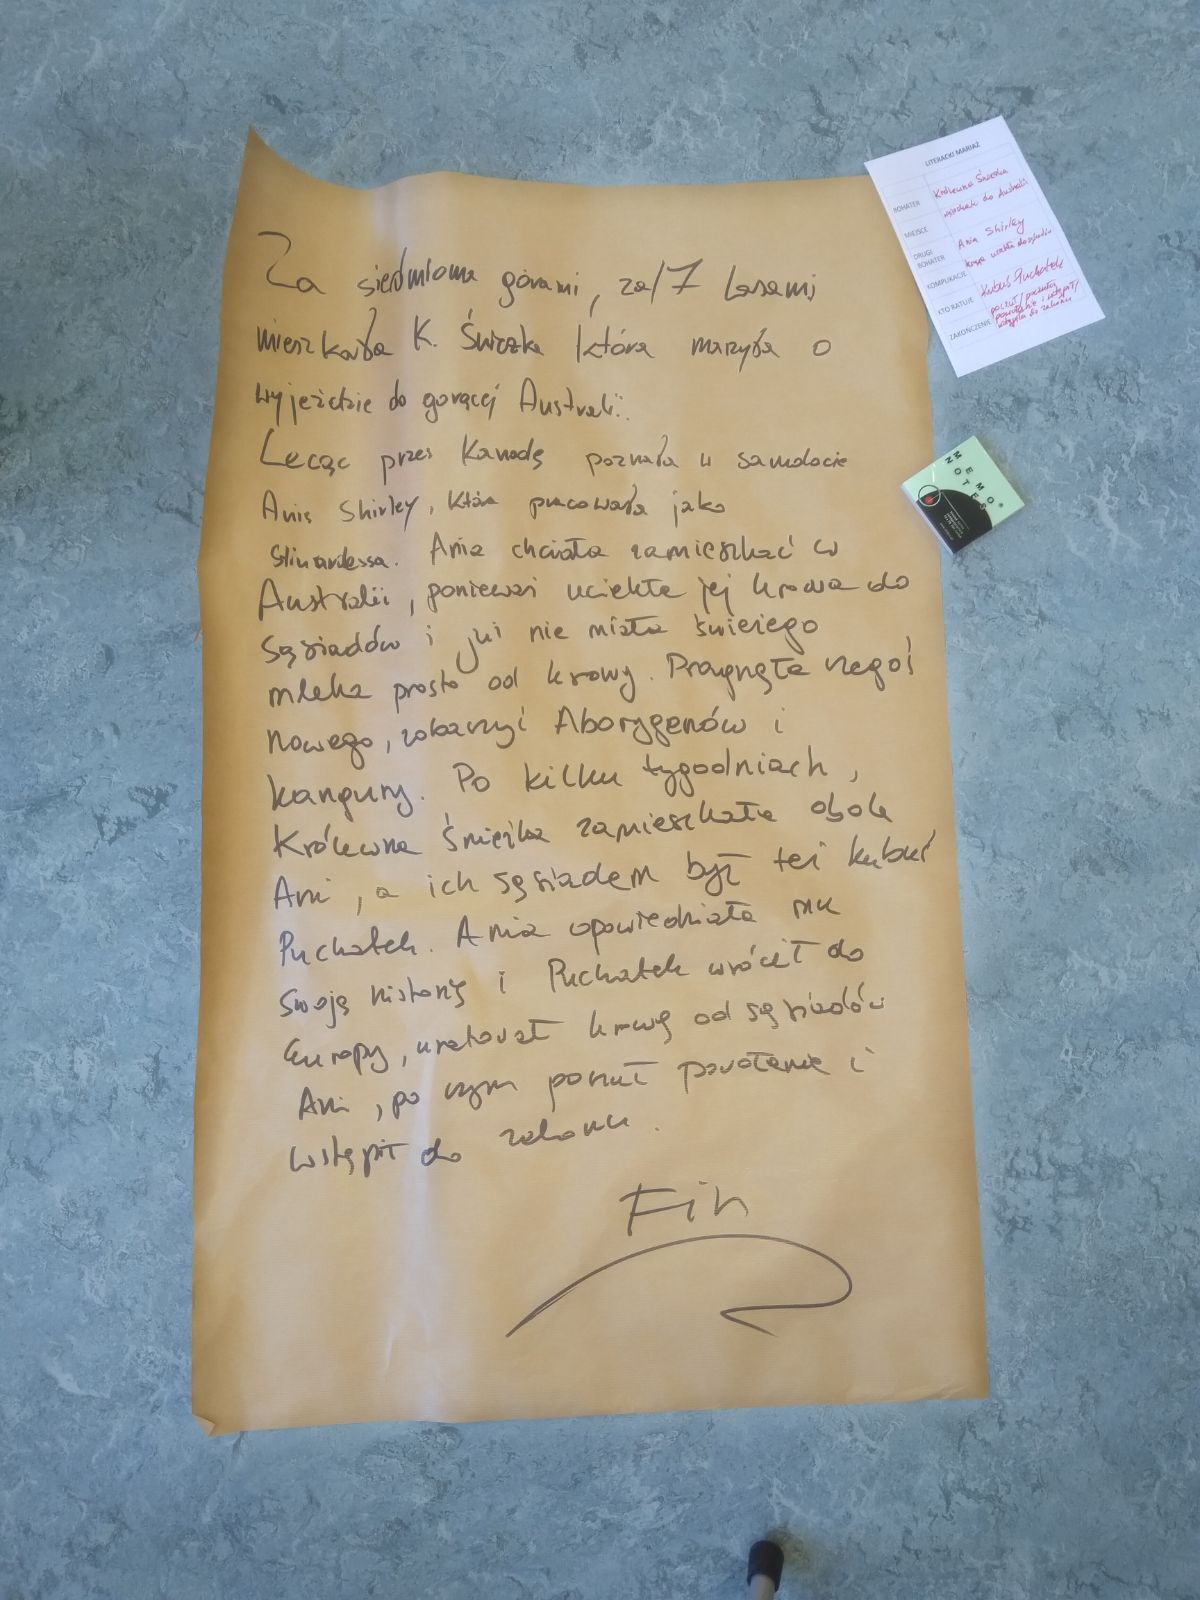 Za siedmioma górami, za/7 Lasami
mieszkała K. Śnieżka która marzyła o
wyjeździe do gorącej Australii.
Lecąc przez Kanadę poznała w samolocie
Anię Shirley, która pracowała jako
Ania chciała zamieszkać w
Australii, ponieważ uciekła jej krowa do
sąsiadów i już nie miała świeżego
mleka prosto od krowy. Pragnęła czegoś
nowego, zobaczyć Aborygenów i
kangury. Po kilku tygodniach,
Królewna Śnieżka zamieszkała obok
Ani, a ich sąsiadem był też Kubuś
Puchatek. Ania opowiedziała mu
swoją historię i Puchatek wrócił do
Europy, uratował krowę od sąsiadów
Ani, po czym poczuł powołanie i
wstąpił do zakonu.
Fin
LITERACKI MARIAŻ
BOHATER Królewna Śnieżka
MIEJSCE wyjechała do Australii
DRUGI BOHATER Ania Shirley
KOMPLIKACJE krowa uciekła do sąsiadów
KTO RATUJE Kubuś Puchatek
ZAKOŃCZENIE poczuł/poczuła
powołanie i wstąpił/
wstąpiła do zakonu
MEMO
NOTES